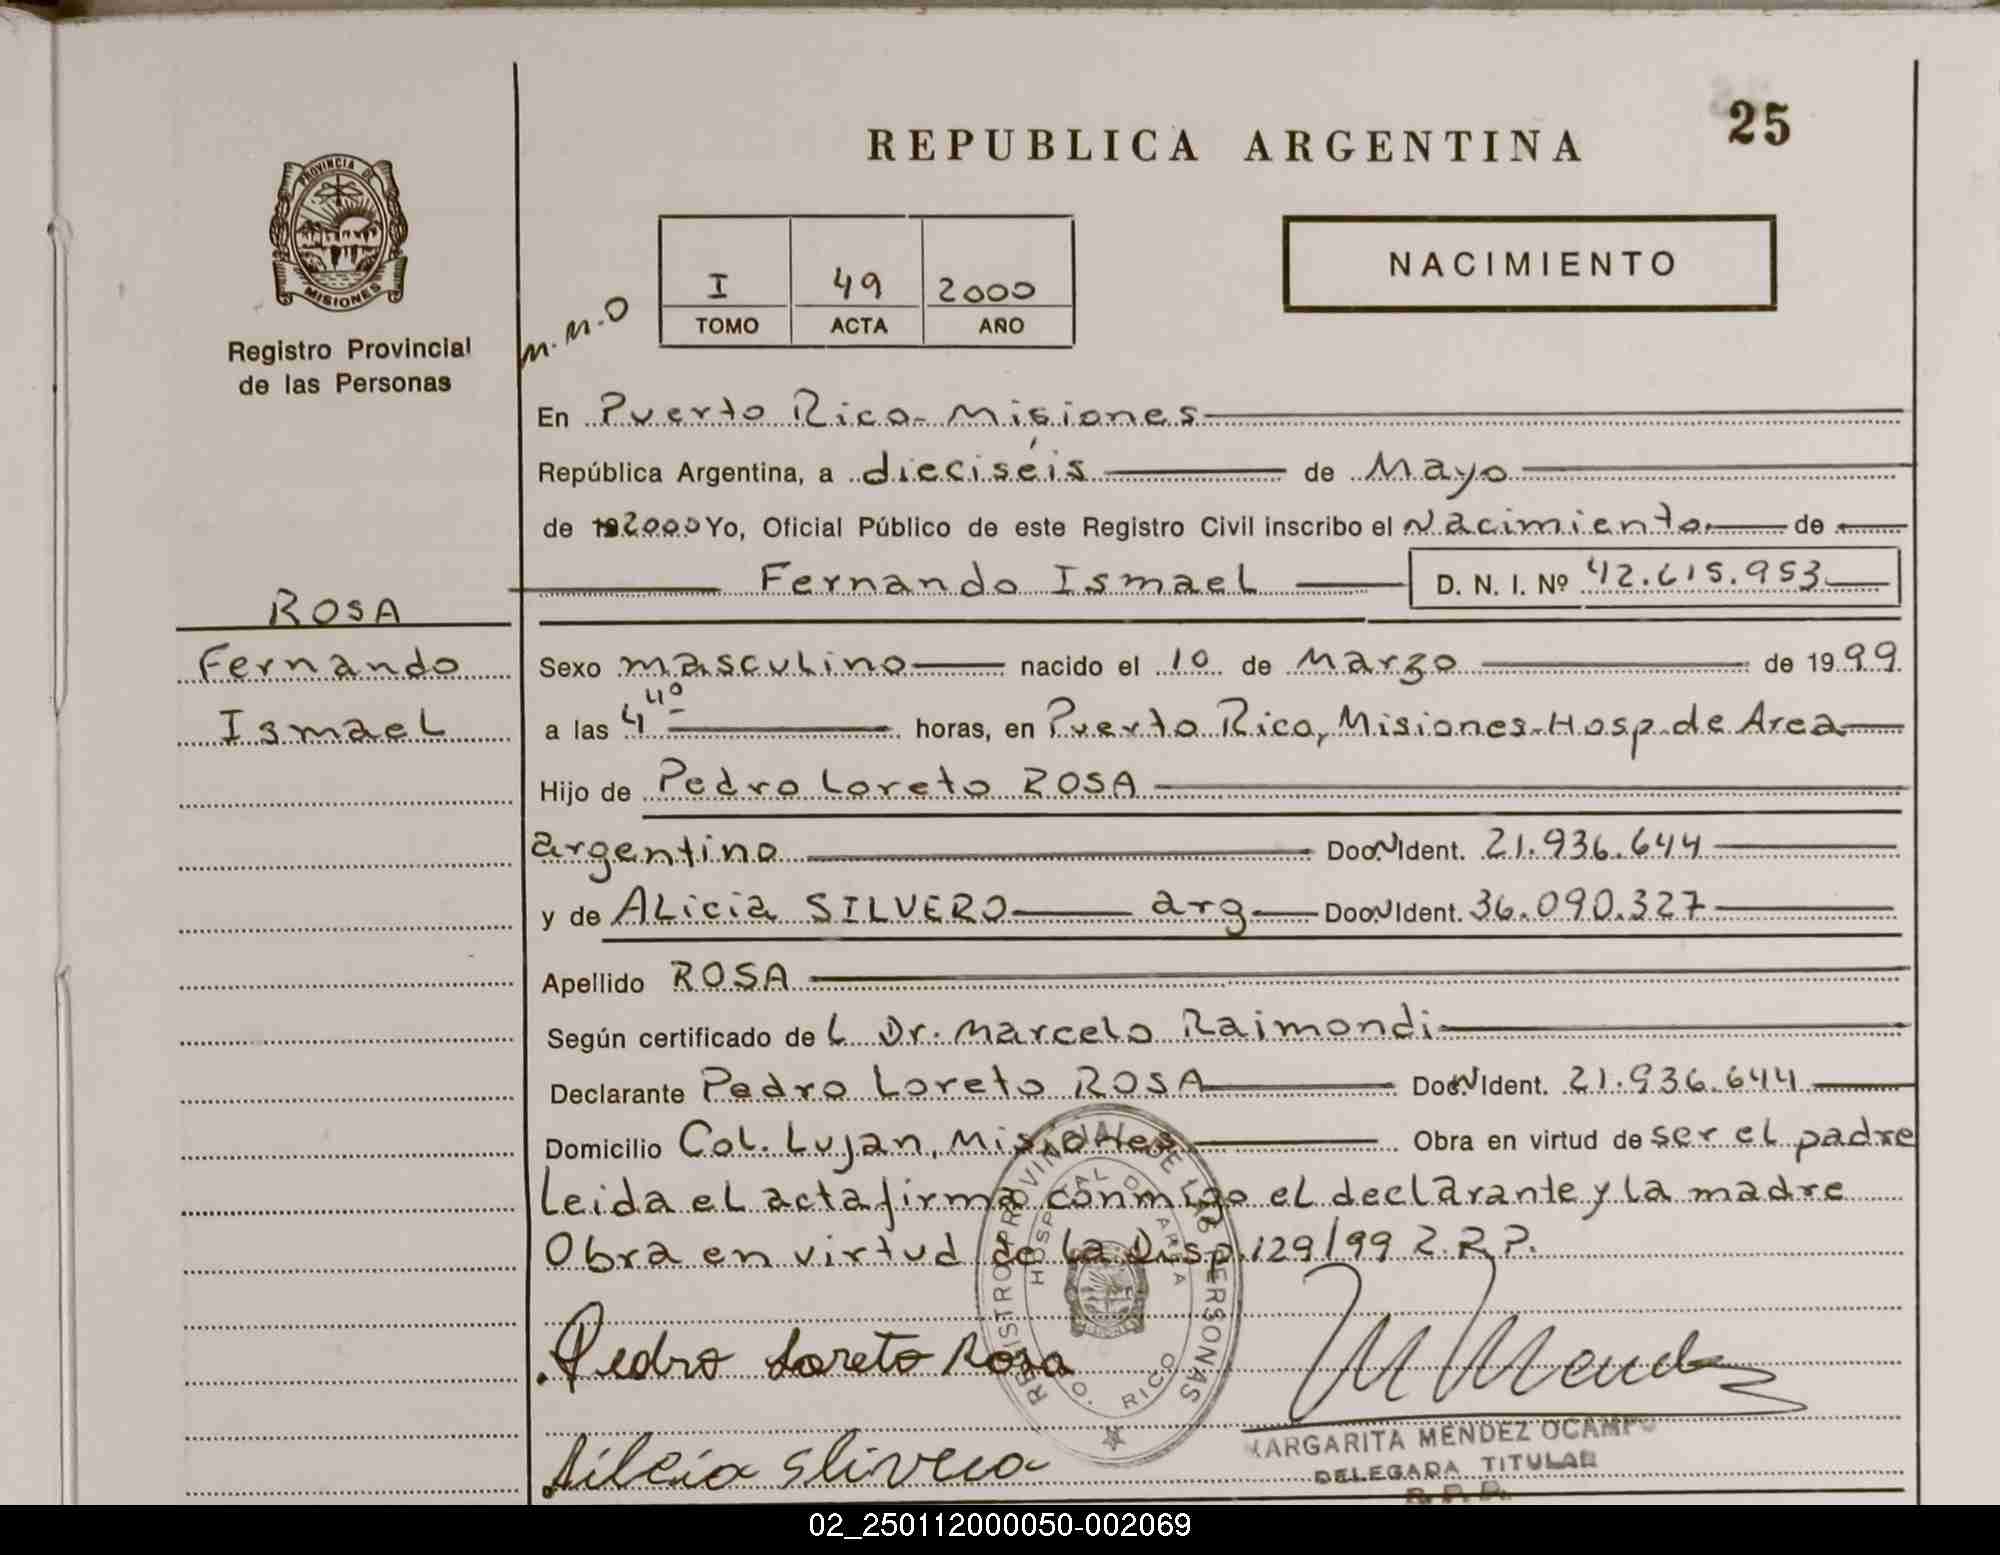 25
REPUBLICA ARGENTINA
PROVINCIA DE
MISIONES
Registro Provincial
de las Personas
NACIMIENTO
I 49 2000
TOMO ACTA AÑO
M.M.O
En Puerto Rico - Misiones
República Argentina, a dieciséis de Mayo
de 19 2000 Yo, Oficial Público de este Registro Civil inscribo el Nacimiento de
Fernando Ismael D. N. I. Nº 42.615.953
ROSA
Fernando
Ismael
Sexo masculino nacido el 10 de Marzo de 1999
a las 4 40 horas, en Puerto Rico, Misiones-Hosp.de Area
Hijo de Pedro Loreto ROSA
argentino Doc. N Ident. 21.936.644
y de ALicia SILVERO arg Doc. N Ident. 36.090.327
Apellido ROSA
Según certificado de L Dr. Marcelo Raimondi
Declarante Pedro Loreto ROSA Doc. N Ident. 21.936.644
Domicilio Col. Lujan, Misiones Obra en virtud de ser el padre
Leida el acta firma conmigo el declarante y la madre
Obra en virtud de la Disp. 129/99 R.P.P.
REGISTRO PROVINCIAL DE LAS PERSONAS
HOSPITAL DE AREA
PTO. RICO
Pedro Loreto Rosa
M Mendez
MARGARITA MENDEZ OCAMPO
DELEGADA TITULAR
R.P.P.
02_250112000050-002069